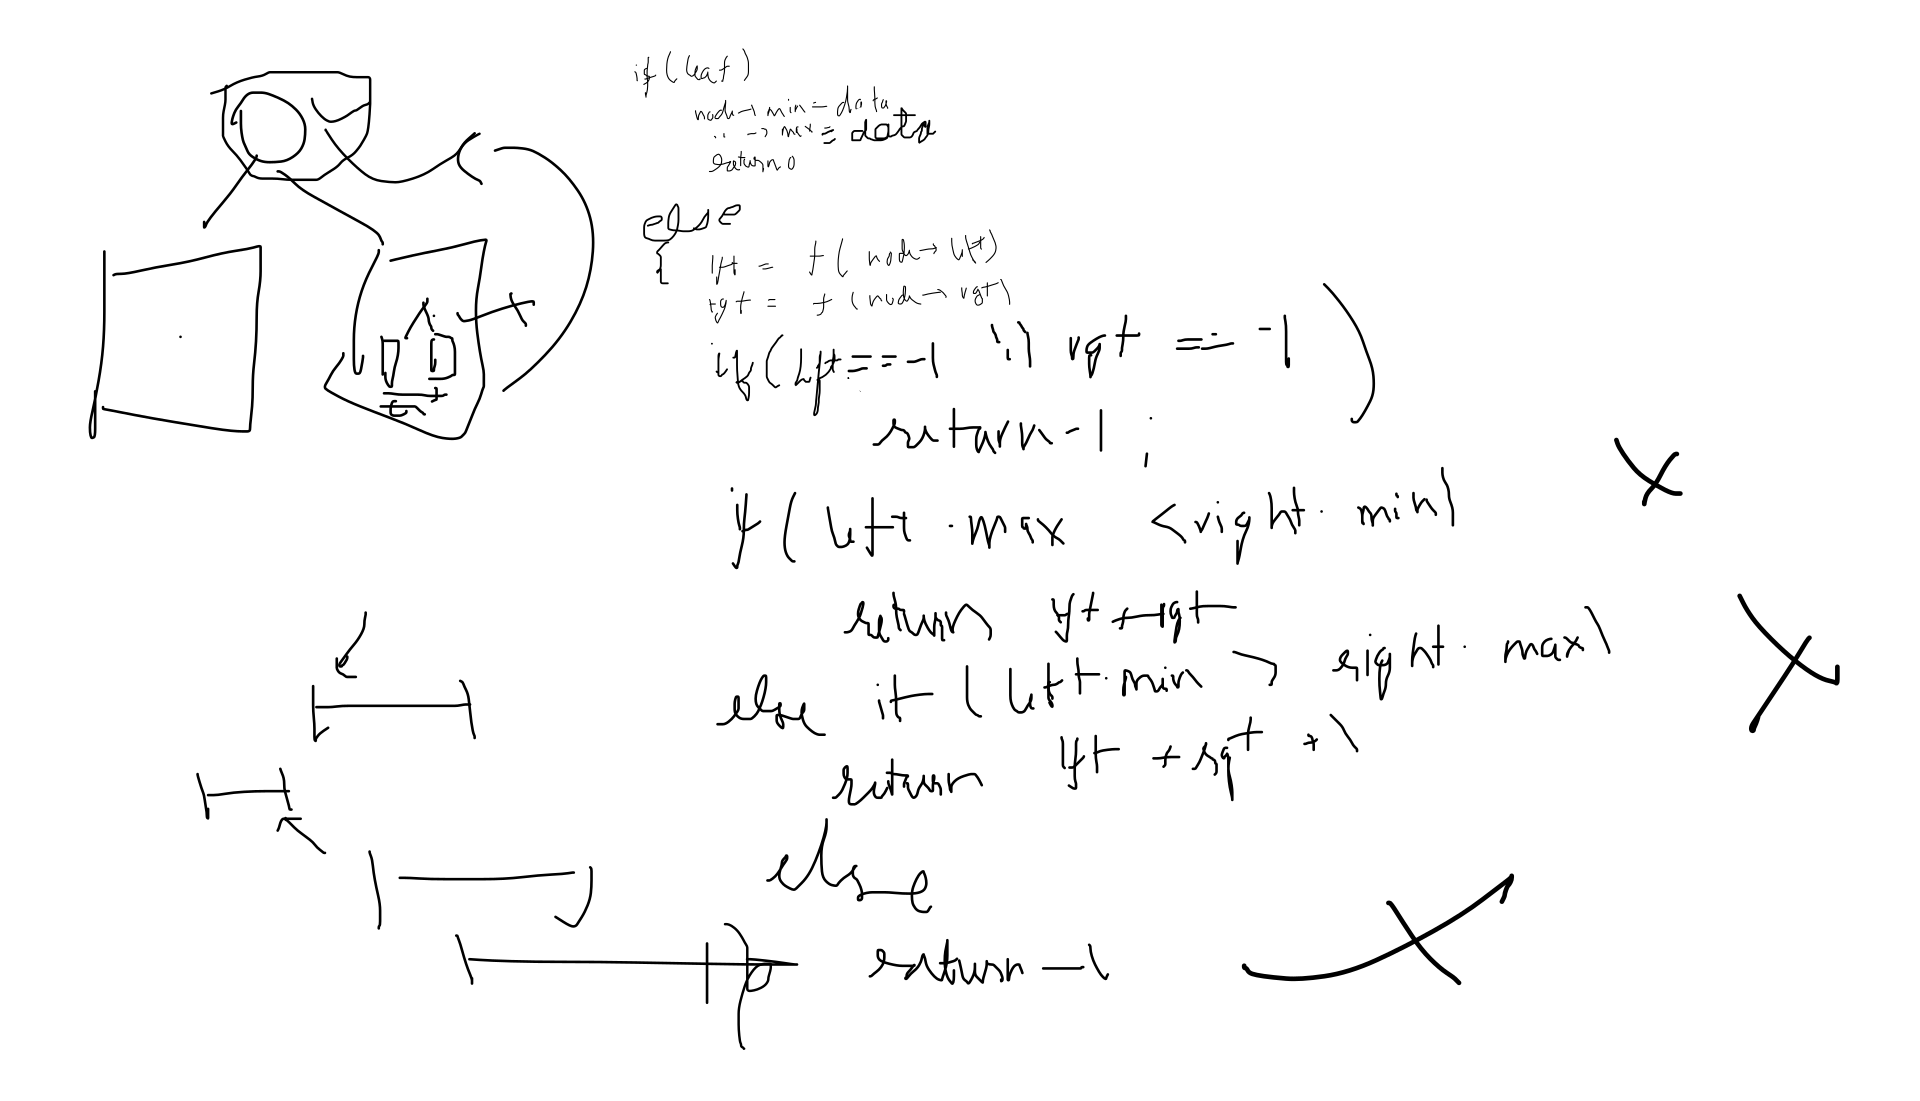 if (leaf)
node → min = data
" → max = data
return 0
else
{
lft = f ( node → lft)
rgt = f (node → rgt)
if (lft == -1 || rgt == -1 )
return -1 ;
if ( left . max < right . min)
return lft + rgt
else if ( left . min > right . max)
return lft + rgt + 1
else
return -1